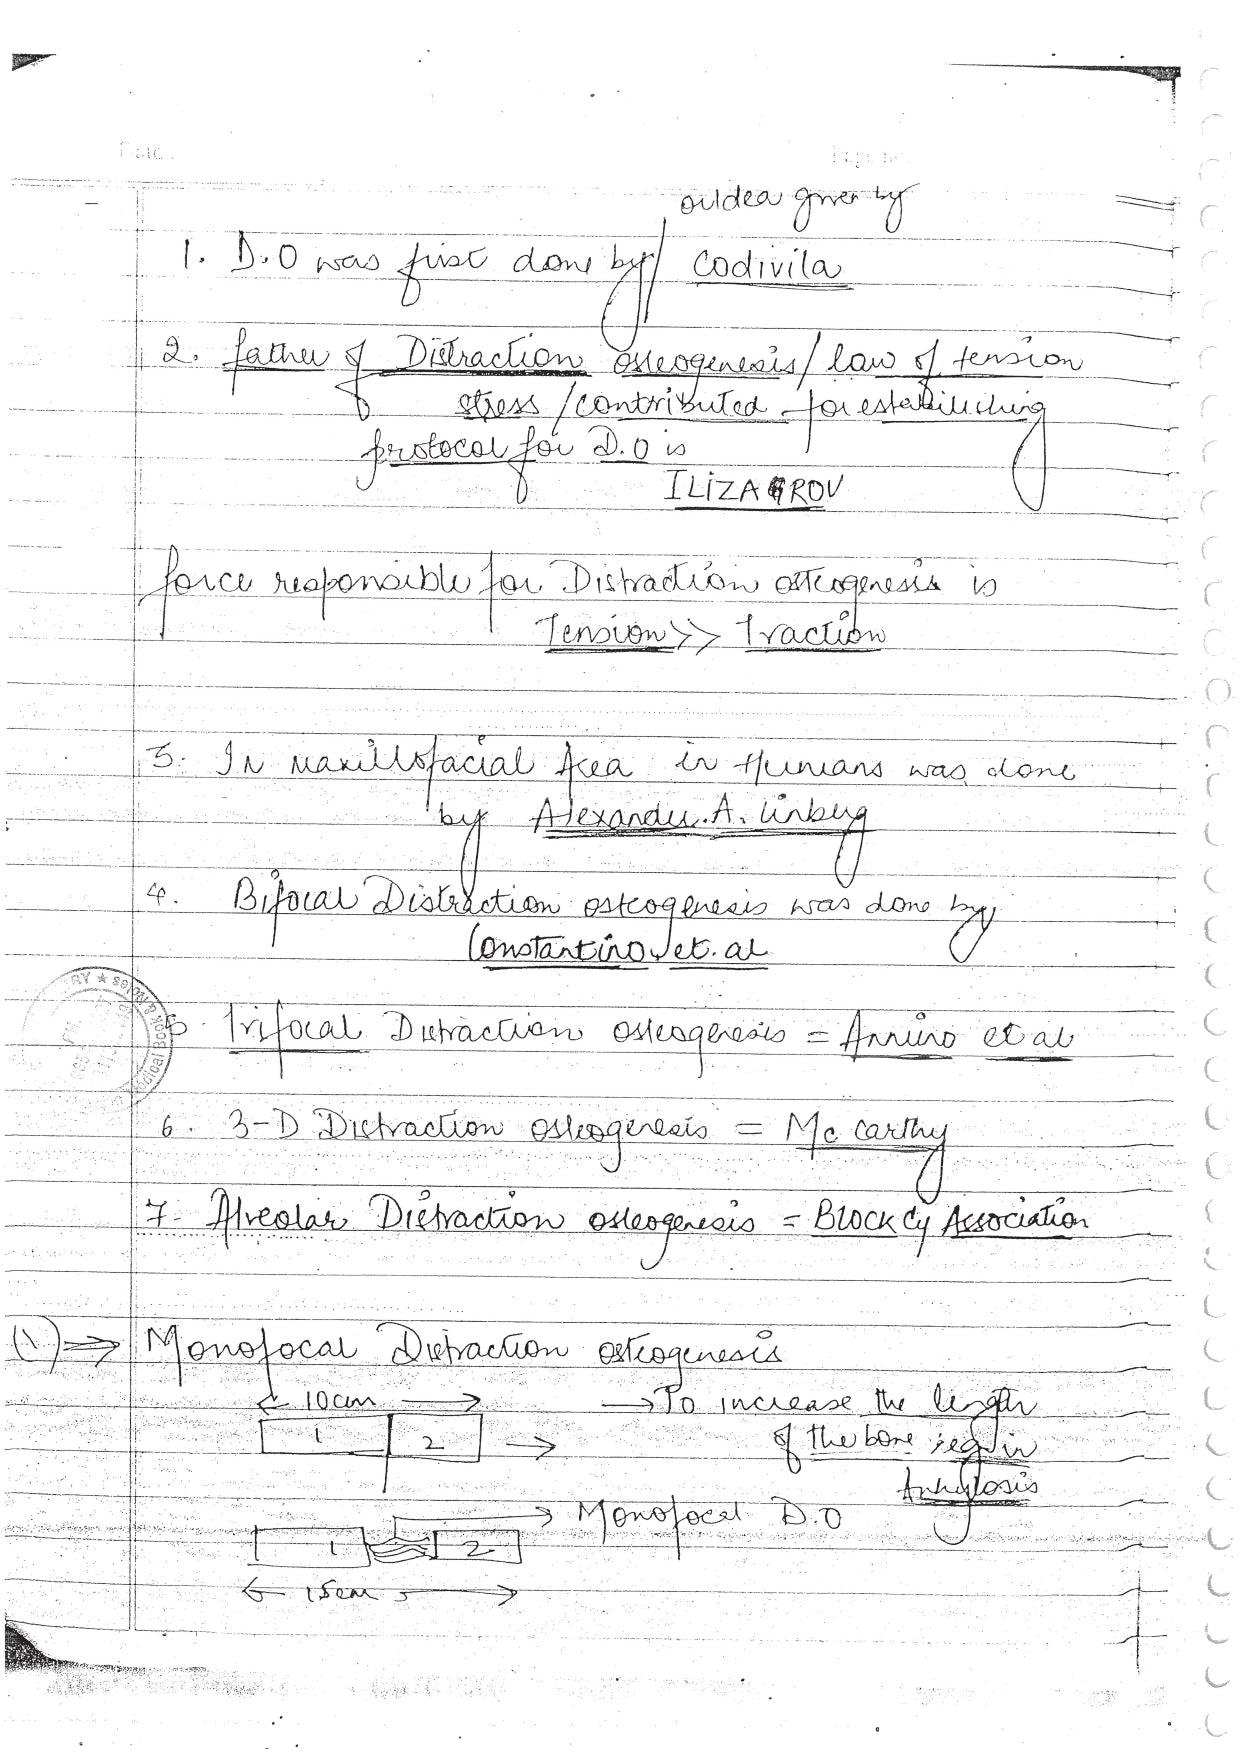 Date
Page no.
or idea given by
1. D.O was first done by/ Codivila
2. father of Distraction osteogenesis/law of tension
stress/contributed for establishing
protocal for D.O is
ILIZAGROV
force responsible for Distraction osteogenesis is
Tension>> Traction
3. In Maxillofacial Area in Humans was done
by Alexander.A. Linberg
4. Bifocal Distraction osteogenesis was done by
Constantino et.al
5. Trifocal Distraction osteogenesis = Annino et al
6. 3-D Distraction osteogenesis = Mc carthy
7. Alveolar Distraction osteogenesis = BLOCK Cy Association
(1)⇒ Monofocal Distraction osteogenesis
← 10cm → → To increase the length
1 2 → of the bone seg in
Ankylosis
→ Monofocal D.O
1 2
← 15cm →